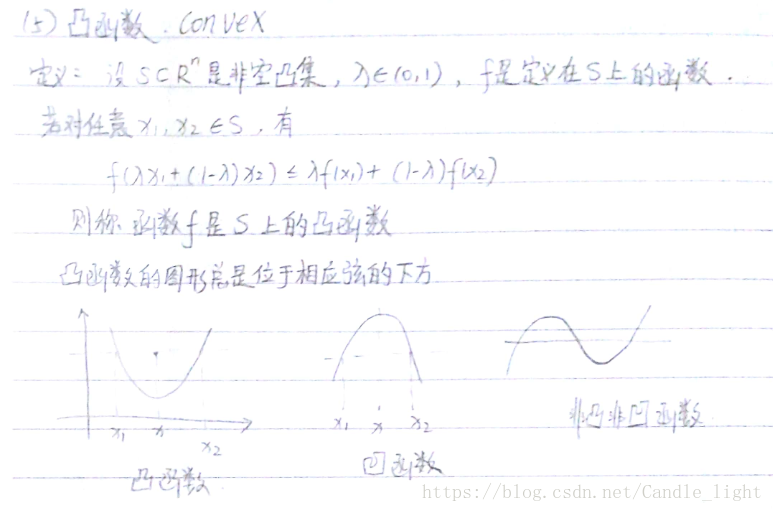 (5) 凸函数. Convex
定义: 设 S⊂Rⁿ 是非空凸集, λ∈(0,1), f是定义在S上的函数.
若对任意 x₁, x₂ ∈ S, 有
f(λx₁+(1-λ)x₂) ≤ λf(x₁)+ (1-λ)f(x₂)
则称 函数f 是 S 上的凸函数
凸函数的图形总是位于相应弦的下方
x₁ x x₂
凸函数
x₁ x x₂
凹函数
非凸非凹函数
https://blog.csdn.net/Candle_light